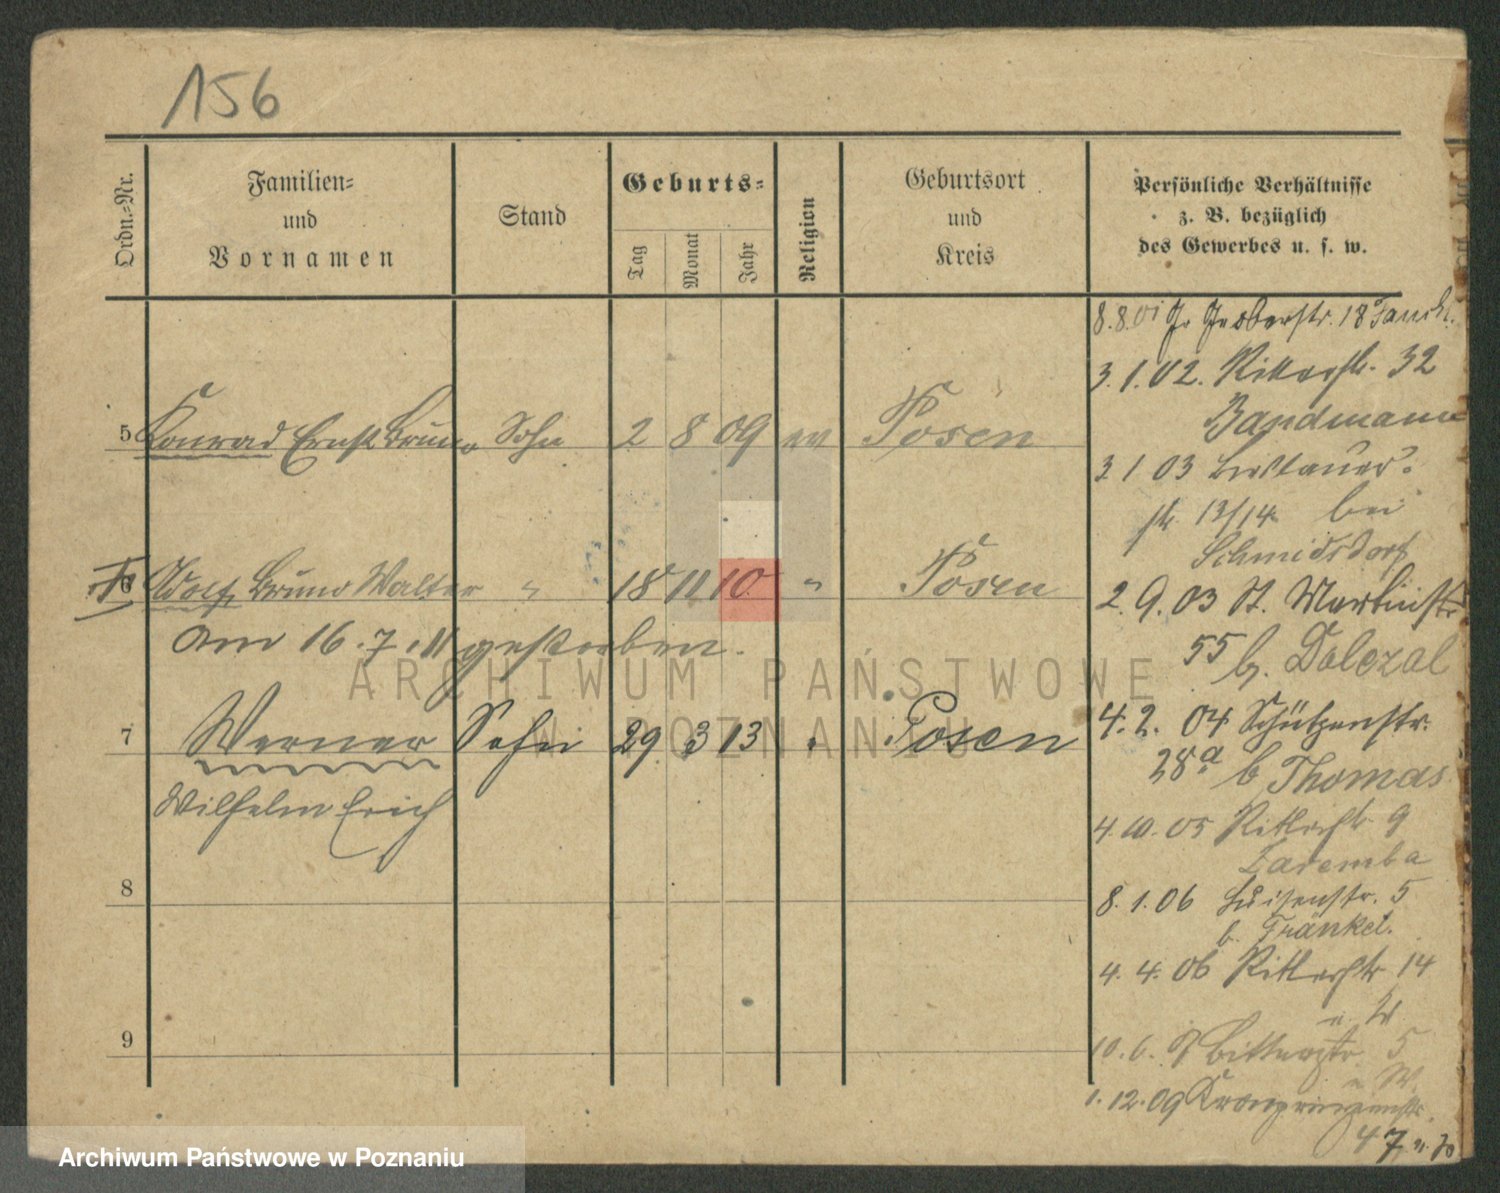 156
Ordn.-Nr.
Familien-
und
Vornamen
Stand
Geburts-
Tag
Monat
Jahr
Religion
Geburtsort
und
Kreis
Persönliche Verhältnisse
z. B. bezüglich
des Gewerbes u. s. w.
5 Konrad Ernst Bruno Sohn 2 8 09 ev Posen
6 Adolf Bruno Walter " 18 11 10 " Posen
am 16.7.11 gestorben.
7 Werner Sohn 29 3 13 " Posen
Wilhelm Erich
8
9
8.8.01 18
3.1.02. Ritterstr. 32
Bandmann
3 1 03
str. 13/14 bei
Schmidsdorf
2.9.03 St. Martinstr
55 b. Dolezal
4.2.04 Schützenstr.
28a b Thomas
4.10.05 Ritterstr 9
Zaremba
8.1.06 Luisenstr. 5
b. Fränkel.
4.4.06 Ritterstr 14
10.6. 5
1.12.09 Kronprinzenstr.
47
ARCHIWUM PAŃSTWOWE
W POZNANIU
Archiwum Państwowe w Poznaniu